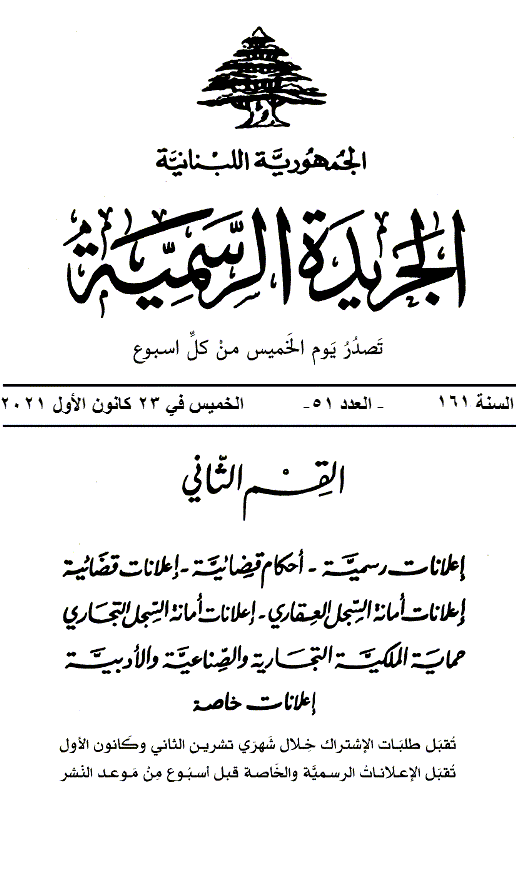 الجُمهُوريَّة اللبْنانيَّة
الجَريدَة الرسَّمِيَّة
تَصدُرُ يَوم الخَميس منْ كلِّ اسبوع
السنة ١٦١ - العدد ٥١- الخميس في ٢٣ كانون الأول ٢٠٢١
القِسْم الثّاني
إعلانات رسميَّة - أحكام قضائيَّة - إعلانات قضائية
إعلانات أمانة السِّجل العِقاري - إعلانات أمانة السِّجل التجاري
حماية الملكيَّة التجارية والصِّناعيَّة والأدبيَّة
إعلانات خاصة
تُقبَل طلبَات الإشتراك خِلال شَهرَي تشرين الثاني وكَانون الأول
تُقبَل الإعلاناتُ الرسميَّة والخَاصة قبل أسبُوع مِنْ مَوعد النَشر